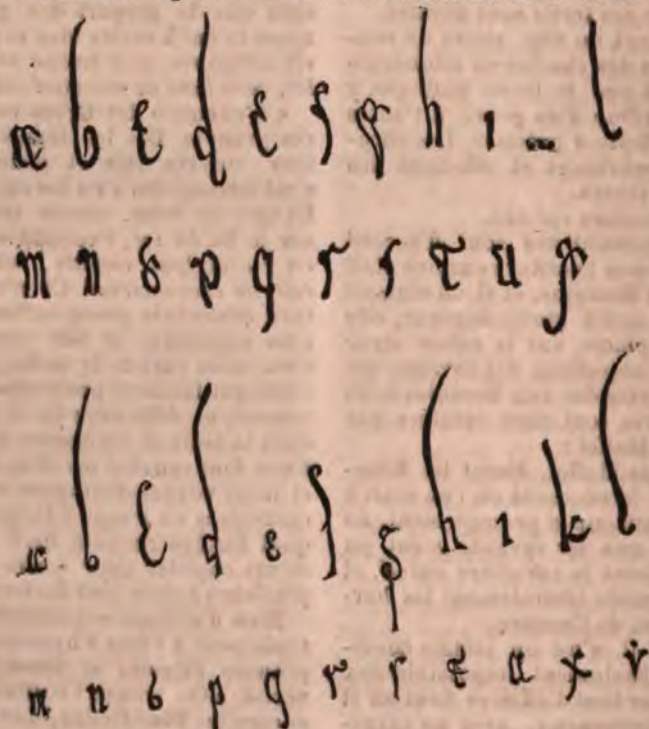 a b c d e f g h i – l
m n o p q r s t u x
a b c d e f g h i k l
m n o p q r s t u x y